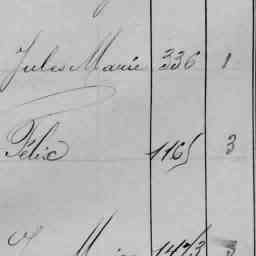 Jules Marie 336 1
Félix 1165 3
1473 3